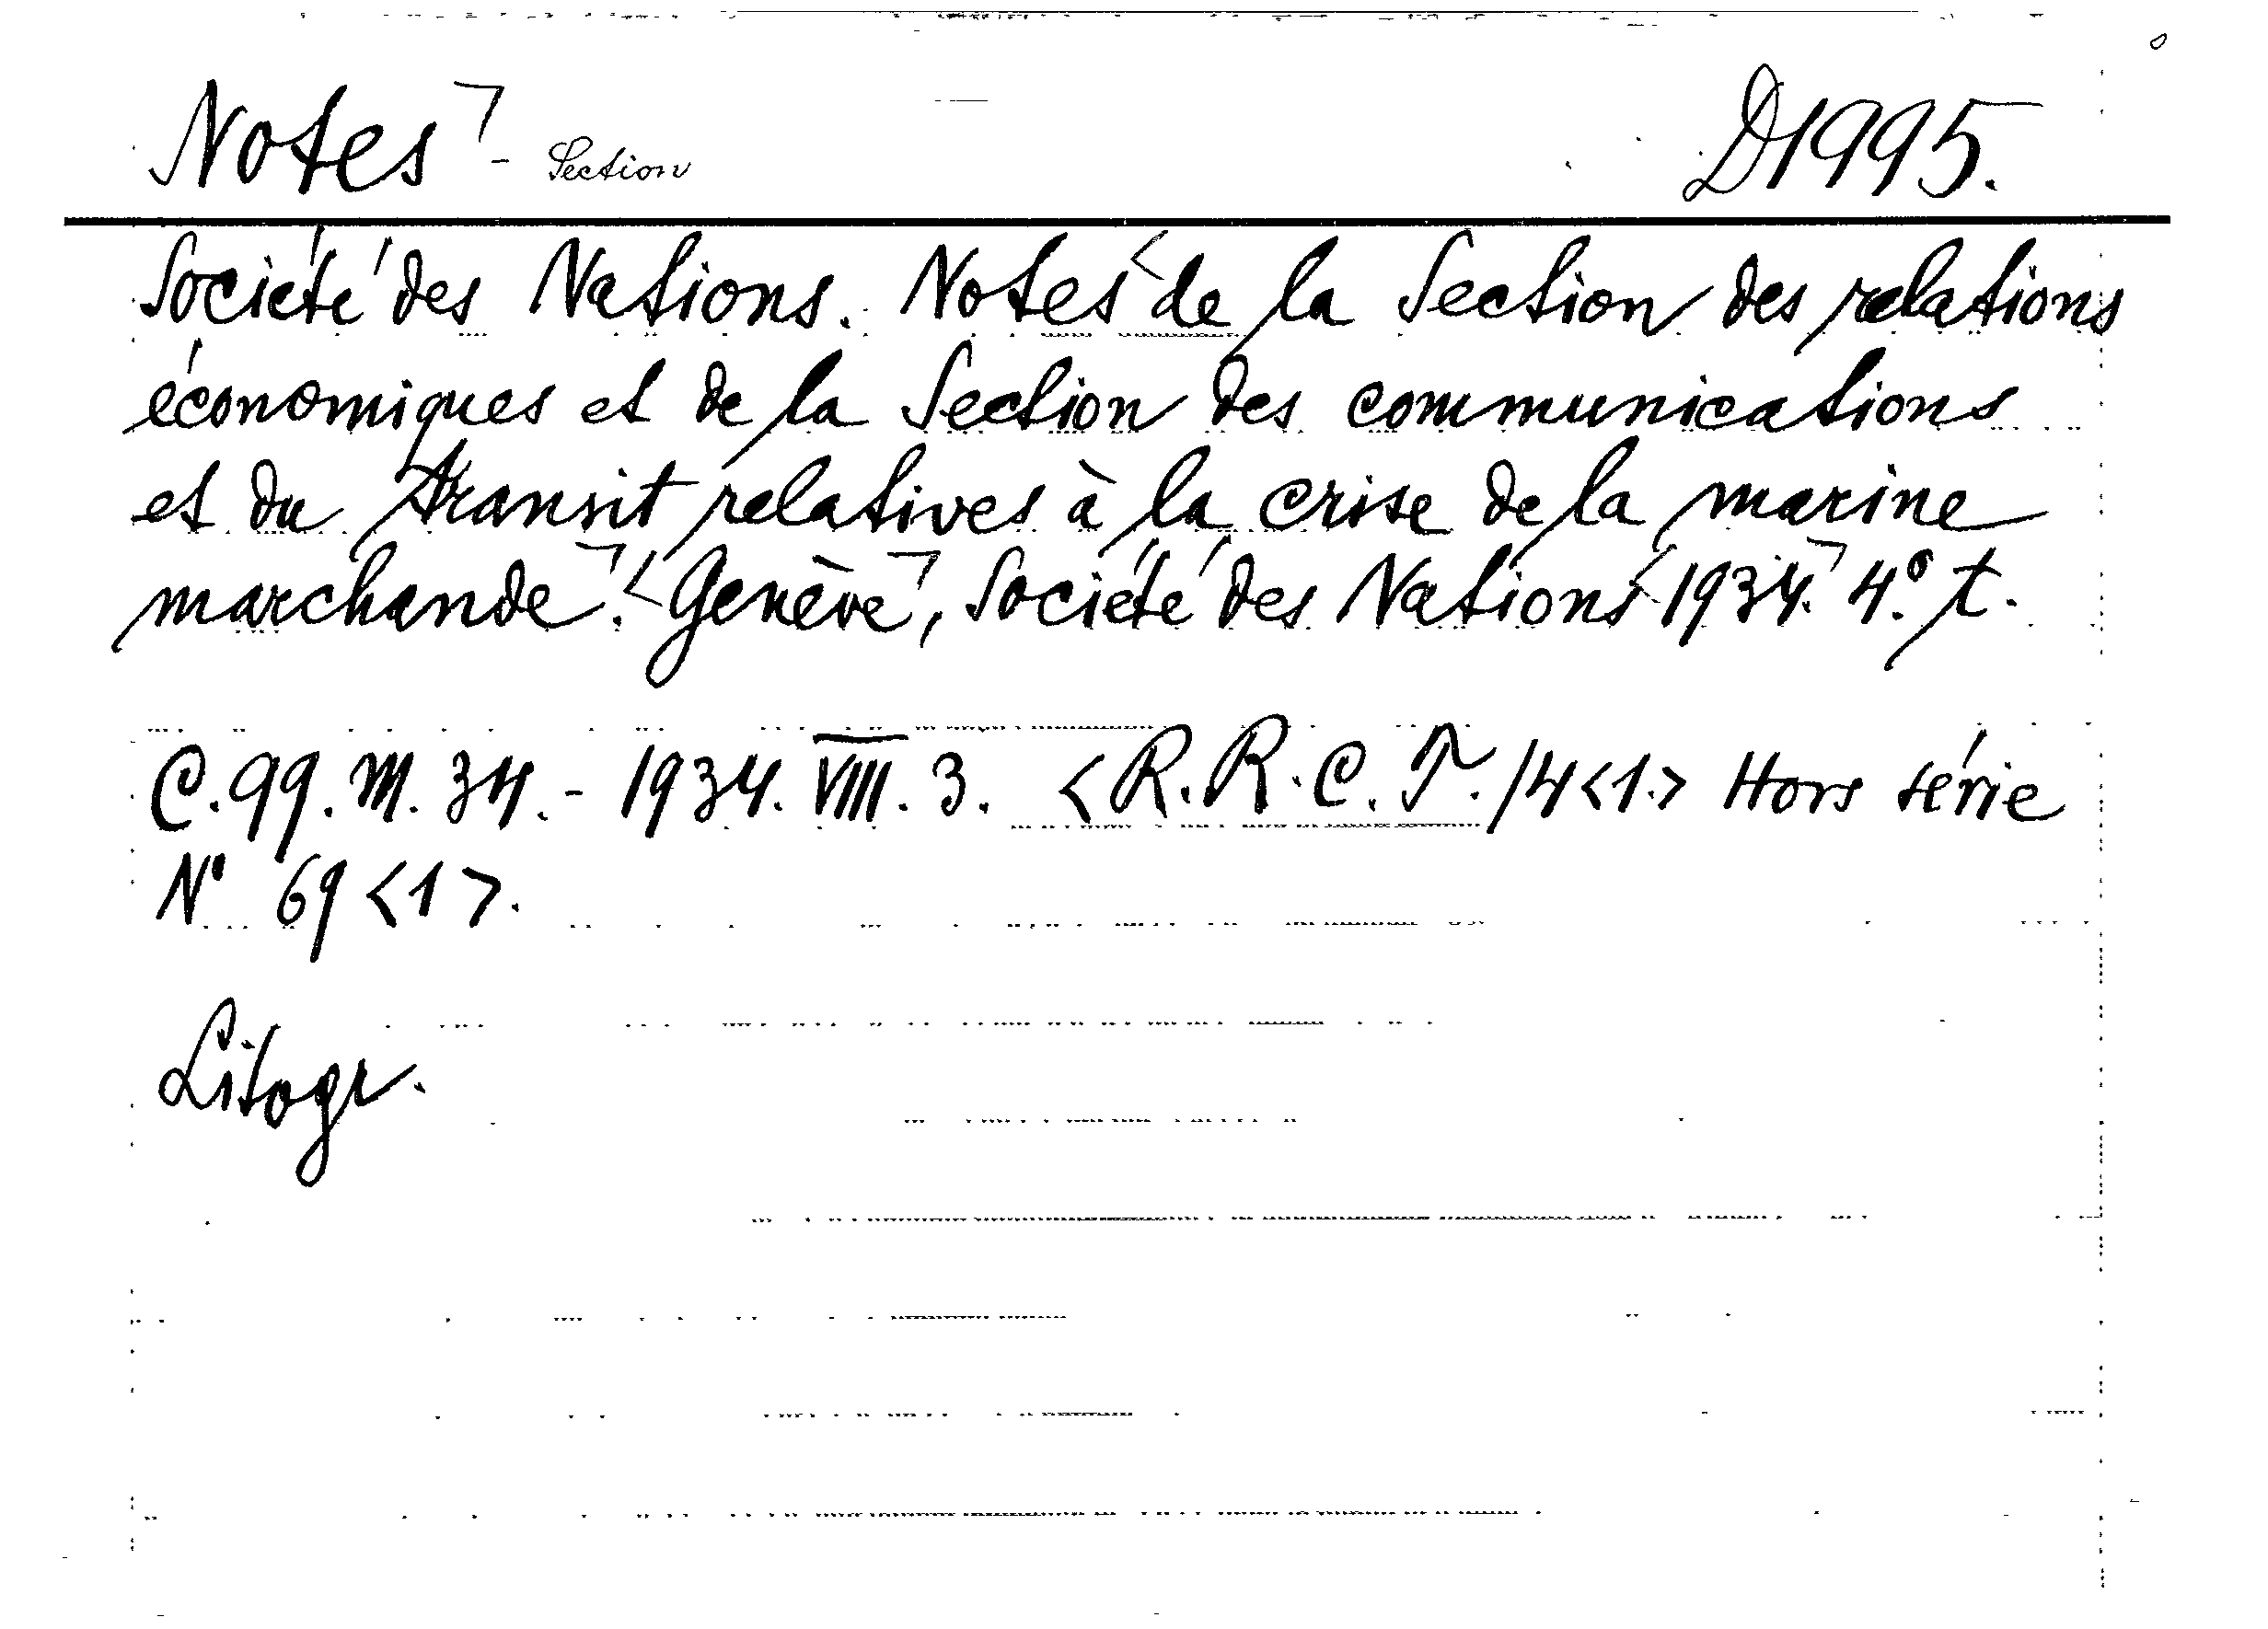 Notes - Section D1995.
Société des Nations. Notes de la Section des relations
économiques et de la Section des communications
et du transit relatives à la crise de la marine
marchande. Genève, Société des Nations 1934. 4.º t.
C.99.M.34.- 1934.VIII.3. <R.R.C.T./4<1.> Hors série
Nº 69<1>.
Litogr.